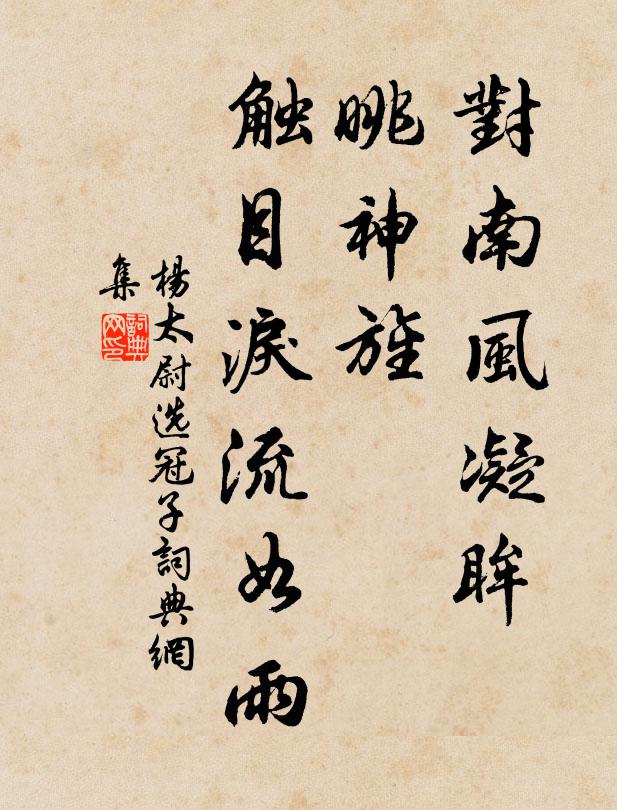 對南風凝眸
眺神旌
触目淚流如雨
楊太尉选冠子詞典網
集
詞典
网印